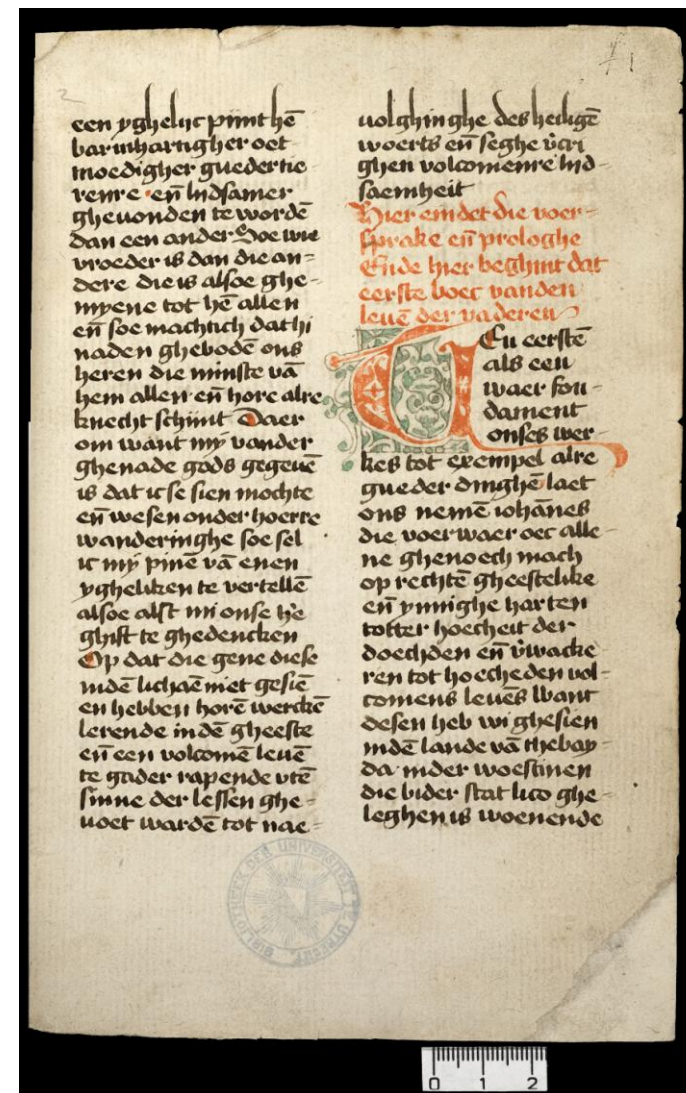 2
1
een yghelijc pijnt hē
barmhartigher oet
moedigher guedertie
renre eñ lydsamer
gheuonden te wordē
dan een ander Soe wie
vroeder is dan die an
dere die is alsoe ghe
myene tot hē allen
eñ soe machtich dat hi
naden ghebodē ons
heren die minste vā
hem allen eñ hore alre
knecht schijnt Daer
om want my vander
ghenade gods gegeuē
is dat ic se sien mochte
eñ wesen onder hoerre
wanderinghe soe sel
ic my pinē vā enen
ygheliken te vertellē
alsoe alst mi onse he
ghift te ghedencken
Op dat die gene diese
indē lichaē niet gesiē
en hebben horē werckē
lerende indē gheeste
eñ een volcomē leuē
te gader rapende vtē
sinne der lessen ghe
uoet wardē tot nae
uolghinghe des heiligē
woerts eñ seghe v̄cri
ghen volcomenre lyd
saemheit
Hier eindet die voer
sprake eñ prologhe
Ende hier beghint dat
eerste boec vanden
leuē der vaderen
TEn eerstē
als een
waer fon
dament
onses wer
kes tot exempel alre
gueder dinghē laet
ons nemē iohānes
die voerwaer oec alle
ne ghenoech mach
op rechtē gheestelike
eñ ynnighe harten
totter hoecheit der
doechden eñ v̄wacke
ren tot hoecheden vol
comens leuēs Want
desen heb wi ghesien
indē lande vā thebay
da inder woestinen
die bider stat lico ghe
leghen is woenende
BIBLIOTHEEK DER UNIVERSITEIT TE UTRECHT
0 1 2